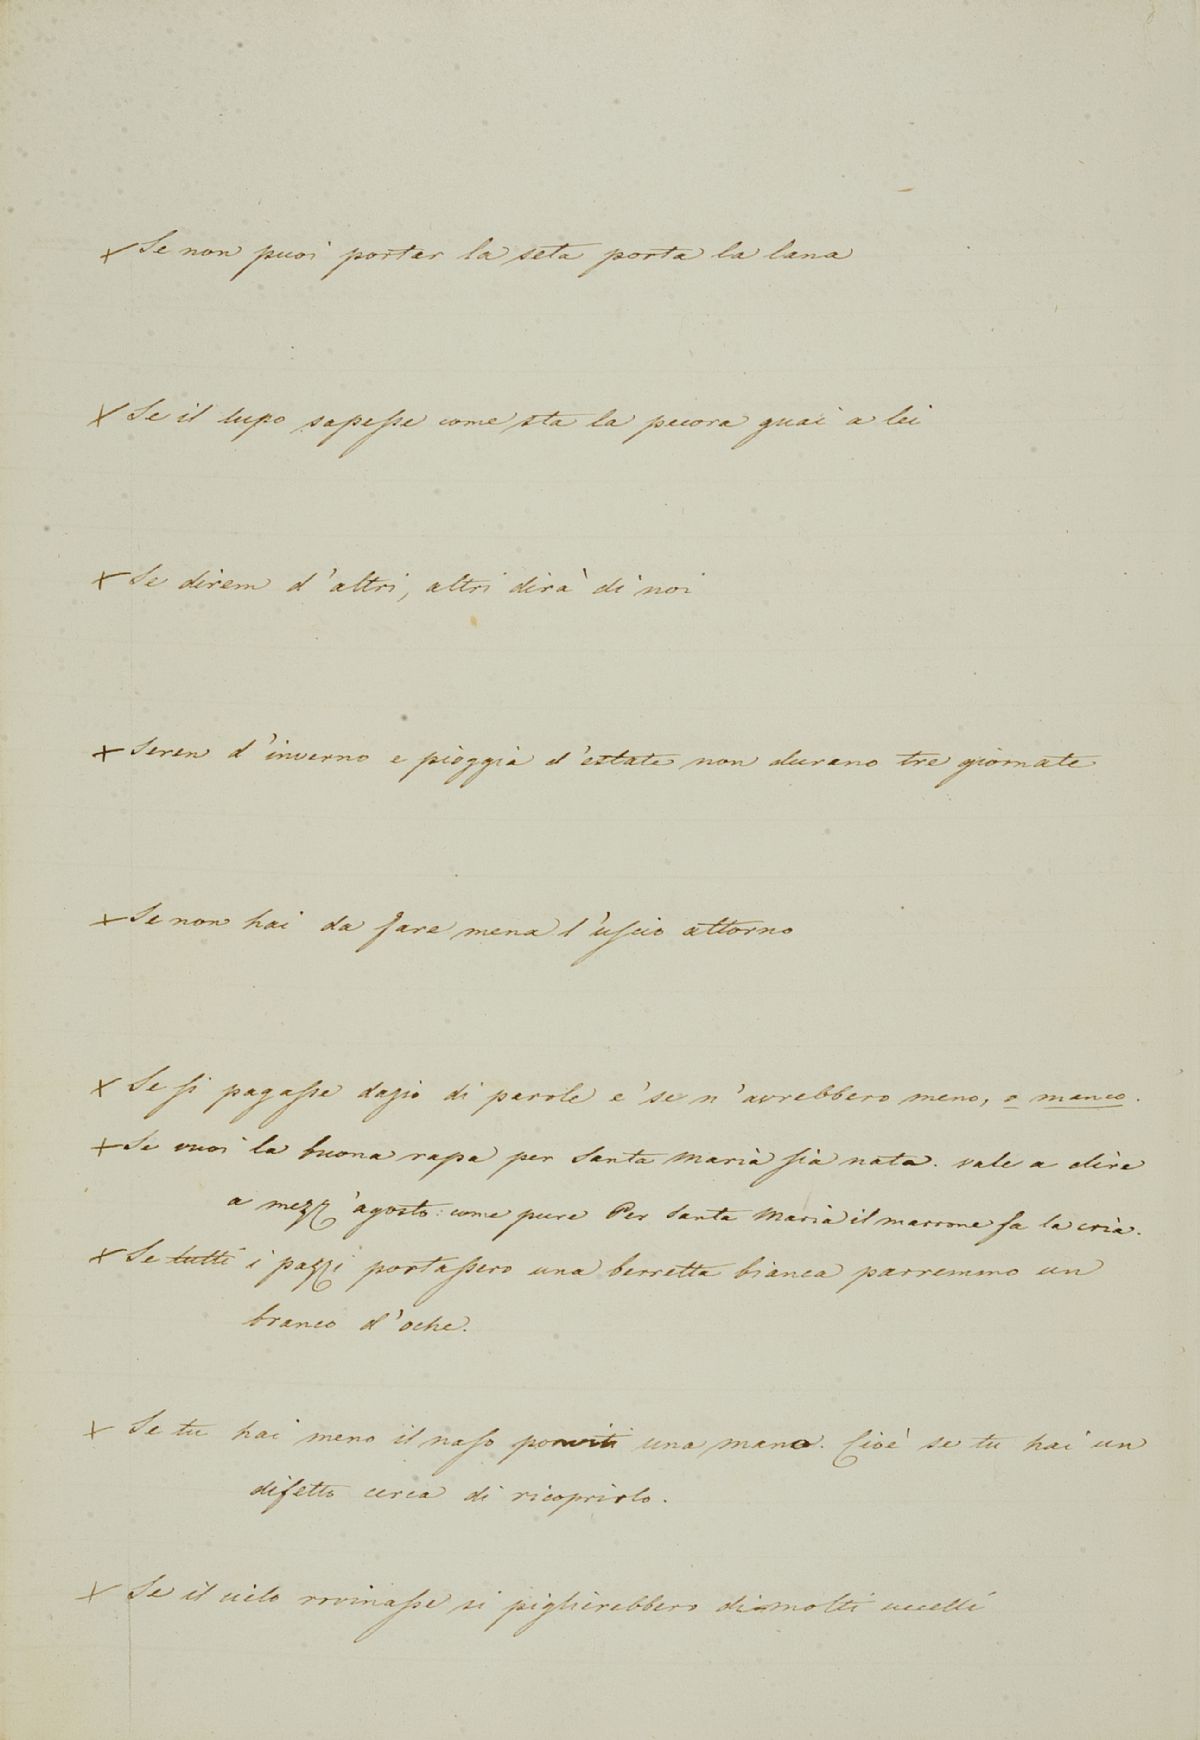 × Se non puoi portar la seta porta la lana
× Se il lupo sapesse come sta la pecora guai a lei
× Se direm d'altri, altri dirà di noi
× Seren d'inverno e pioggia d'estate non durano tre giornate
× Se non hai da fare mena l'uscio attorno
× Se si pagasse dazio di parole e' se n'avrebbero meno, o manco.
× Se vuoi la buona rapa per Santa Maria sia nata. vale a dire
a mezz'agosto: come pure Per Santa Maria il marrone fa la cria.
× Se tutti i pazzi portassero una berretta bianca parremmo un
branco d'oche.
× Se tu hai meno il naso ponviti una mano. Cioè se tu hai un
difetto cerca di ricoprirlo.
× Se il cielo rovinasse si piglierebbero di molti uccelli